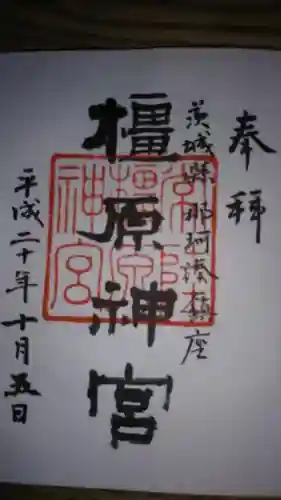 奉拝
茨城縣那珂湊鎮座
橿原神宮
平成二十年十月五日